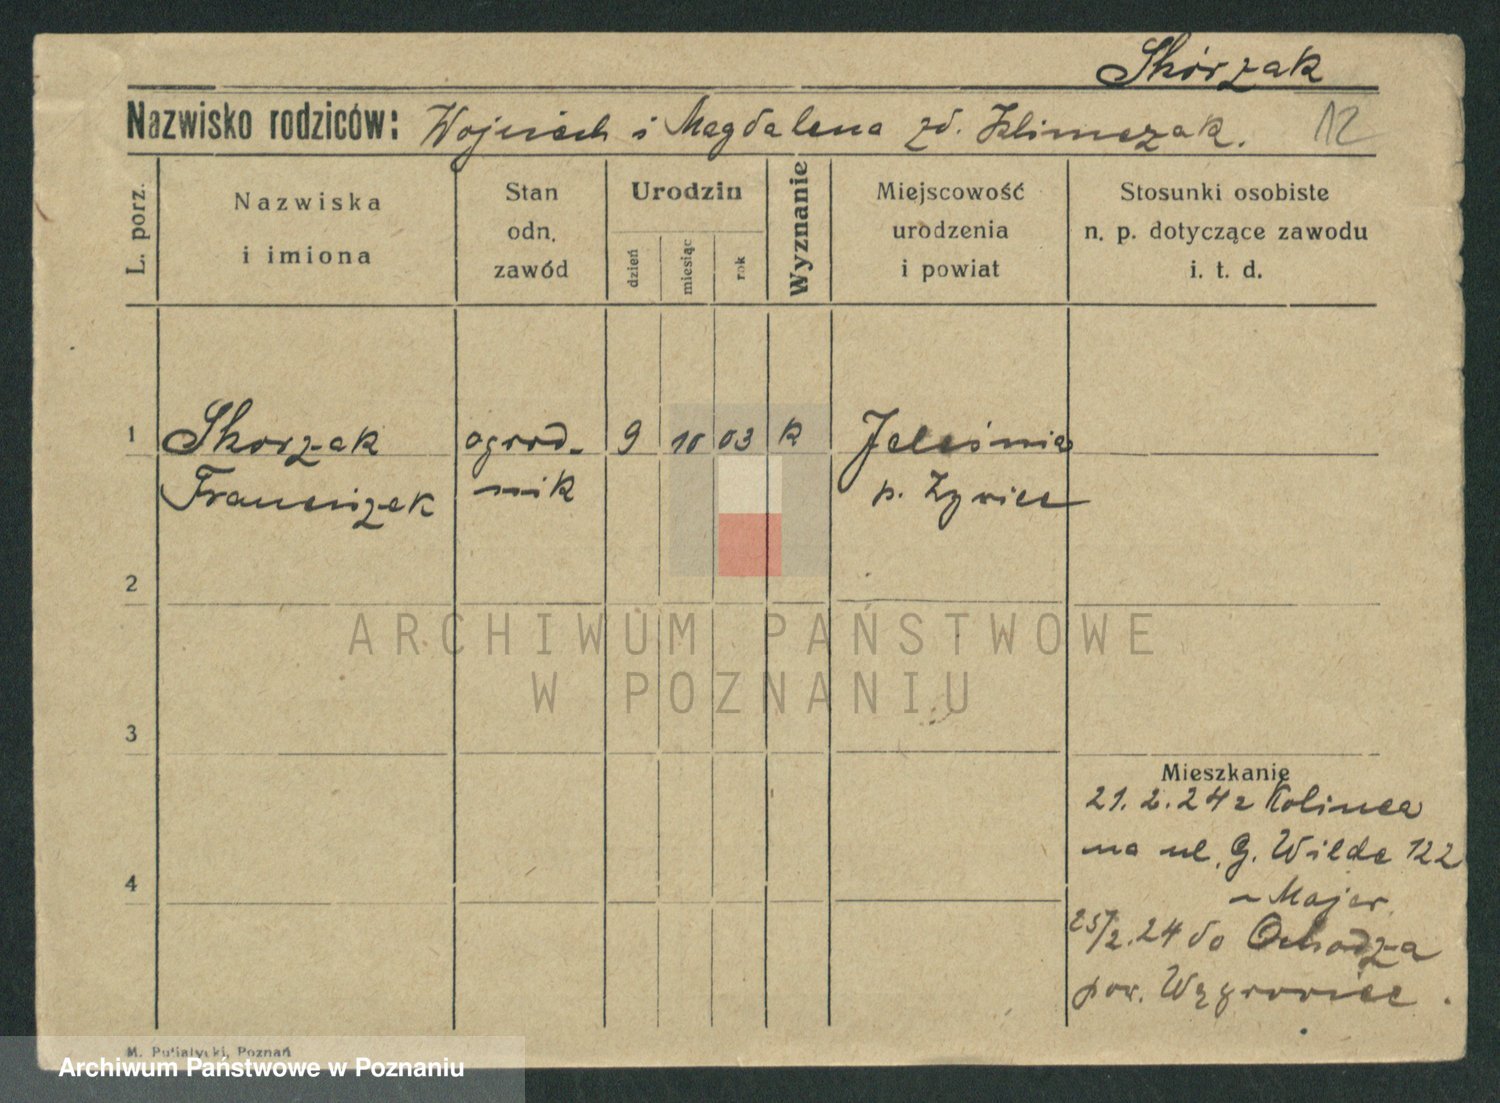 Skórzak
Nazwisko rodziców: Wojciech i Magdalena zd. Klimczak. 12
L. porz.
Nazwiska
i imiona
Stan
odn.
zawód
Urodzin
dzień
miesiąc
rok
Wyznanie
Miejscowość
urodzenia
i powiat
Stosunki osobiste
n. p. dotyczące zawodu
i. t. d.
1 Skorzak ogrod- 9 10 03 k Jeleśnia
Franciszek nik p. Żywiec
2
ARCHIWUM PAŃSTWOWE
W POZNANIU
3
Mieszkanie
21. 2. 24 z
na ul. G. Wilde 122
Majer
4
25/2. 24 do Ochodza
pow. Wągrowiec.
M. Putiatycki, Poznań
Archiwum Państwowe w Poznaniu